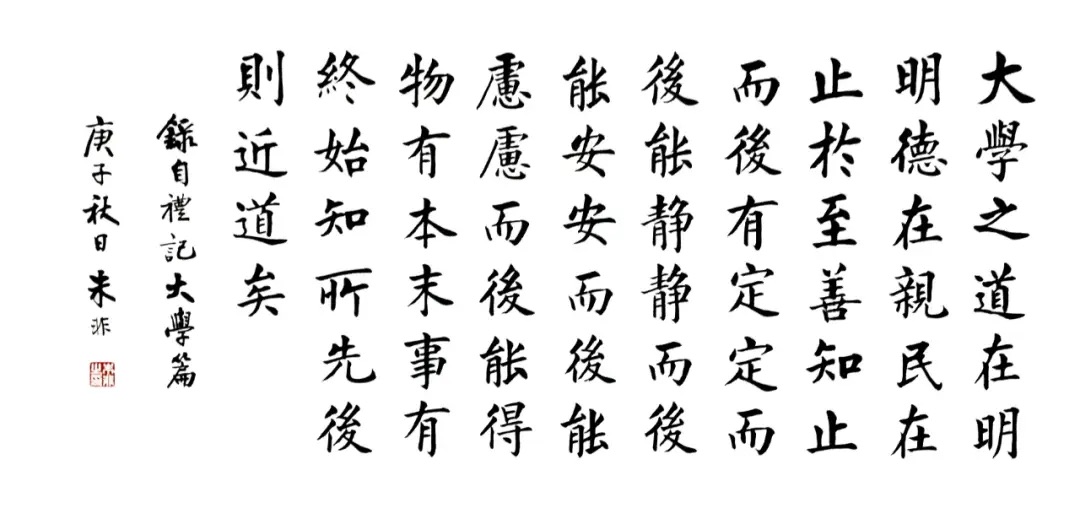 大學之道在明
明德在親民在
止於至善知止
而後有定定而
後能静静而後
能安安而後能
慮慮而後能得
物有本末事有
終始知所先後
則近道矣
錄自禮記大學篇
庚子秋日朱非